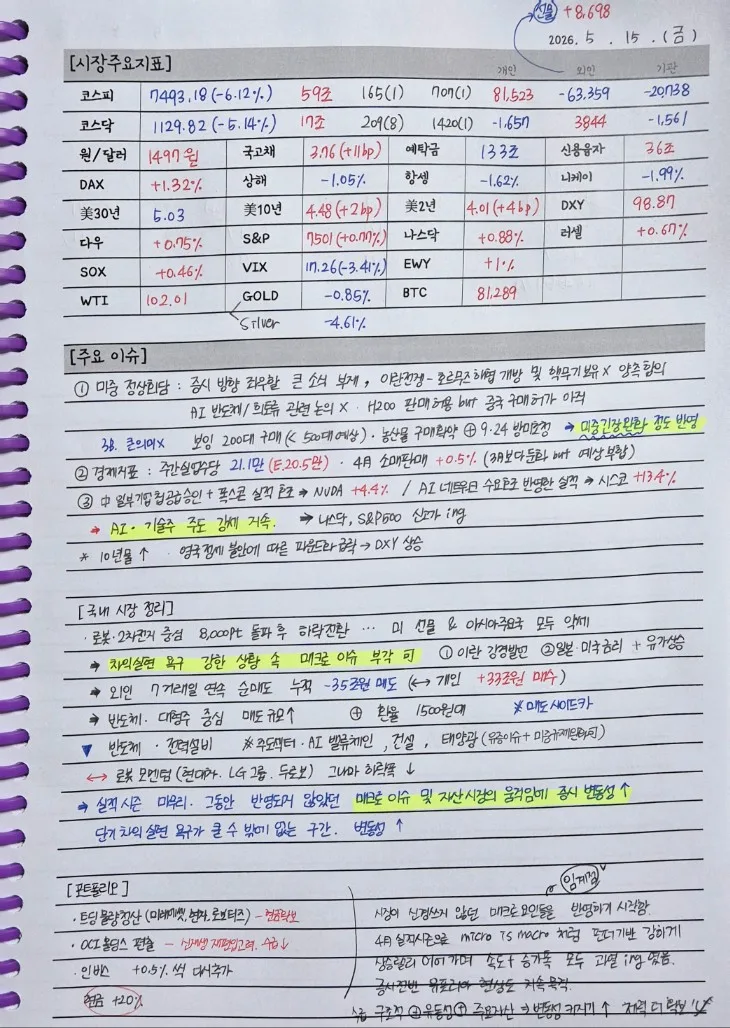 선물 +8,698
2026. 5. 15. (금)
[시장주요지표] 개인 외인 기관
코스피 7493.18 (-6.12%) 59조 165(1) 707(1) 81,523 -63,359 -20,738
코스닥 1129.82 (-5.14%) 17조 209(8) 1420(1) -1,657 3844 -1,561
원/달러 1497원 국고채 3.76 (+11bp) 예탁금 133조 신용융자 36조
DAX +1.32% 상해 -1.05% 항셍 -1.62% 니케이 -1.99%
美30년 5.03 美10년 4.48 (+2bp) 美2년 4.01 (+4bp) DXY 98.87
다우 +0.75% S&P 7501 (+0.77%) 나스닥 +0.88% 러셀 +0.67%
SOX +0.46% VIX 17.26 (-3.41%) EWY +1%
WTI 102.01 GOLD -0.85% BTC 81,289
Silver -4.61%
[주요 이슈]
① 미중 정상회담 : 증시 방향 좌우할 큰 소식 부재, 이란전쟁 - 호르무즈해협 개방 및 핵무기보유 X 양측 합의
AI 반도체/희토류 관련 논의 X · H200 판매허용 but 중국 구매허가 아직
3일. 큰의미X 보잉 200대 구매 (< 500대예상) · 농산물 구매확약 ⊕ 9.24 방미초청 → 미중긴장완화 정도 반영
② 경제지표 : 주간실업수당 21.1만 (E.20.5만) · 4月 소매판매 +0.5% (3月보다둔화 but 예상부합)
③ 中 일부기업 칩공급승인 + 폭스콘 실적 호조 → NVDA +4.4% / AI 네트워크 수요호조 반영한 실적 → 시스코 +13.4%
→ AI · 기술주 주도 강세 지속. → 나스닥, S&P500 신고가 ing
* 10년물 ↑ · 영국정세 불안에 따른 파운드화 급락 → DXY 상승
[국내 시장 정리]
· 로봇 · 2차전지 중심 8,000pt 돌파 후 하락전환 … 미 선물 & 아시아주요국 모두 약세
→ 차익실현 욕구 강한 상황 속 매크로 이슈 부각 可 ① 이란 강경발언 ② 일본 · 미국금리 + 유가상승
→ 외인 7거래일 연속 순매도 누적 -35조원 매도 (↔ 개인 +33조원 매수)
→ 반도체 · 대형주 중심 매도 규모↑ ⊕ 환율 1500원대 ※ 매도사이드카
▼ 반도체 · 전력설비 ※ 주도섹터 · AI 밸류체인, 건설, 태양광 (유증이슈 + 미중규제완화可)
↔ 로봇 모멘텀 (현대차 · LG 그룹 · 두로보) 그나마 하락폭 ↓
→ 실적시즌 마무리 · 그동안 반영되지 않았던 매크로 이슈 및 자산시장의 움직임에 증시 변동성 ↑
단기 차익실현 욕구가 클 수 밖에 없는 구간. 변동성 ↑
[포트폴리오]
· 트딩 물량청산 (미래에셋, 현차, 로보티즈) - 현금확보
· OCI 홀딩스 편출 - 수급↓
· 인버스 +0.5% 씩 다시추가
현금 +20%
임계점
시장이 신경쓰지 않던 매크로요인들을 반영하기 시작함.
4月 실적시즌으로 micro is macro 처럼 펀더기반 강하게
상승랠리 이어가며 속도 + 승가폭 모두 과열 ing 였음.
증시전반 유포리아 현상도 지속 목격.
수급 구조적 ⊕ 유동성↑ 주요자산 → 변동성 커지기 ↑ 체력 더 확보